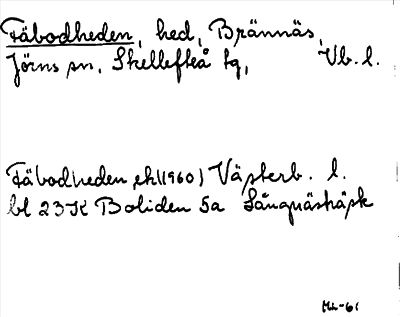 Fäbodheden, hed, Brännäs,
Jörns sn, Skellefteå tg, Vb. l.
Fäbodheden ek (1960) Västerb. l.
bl 23K Boliden 5a Långnästräsk